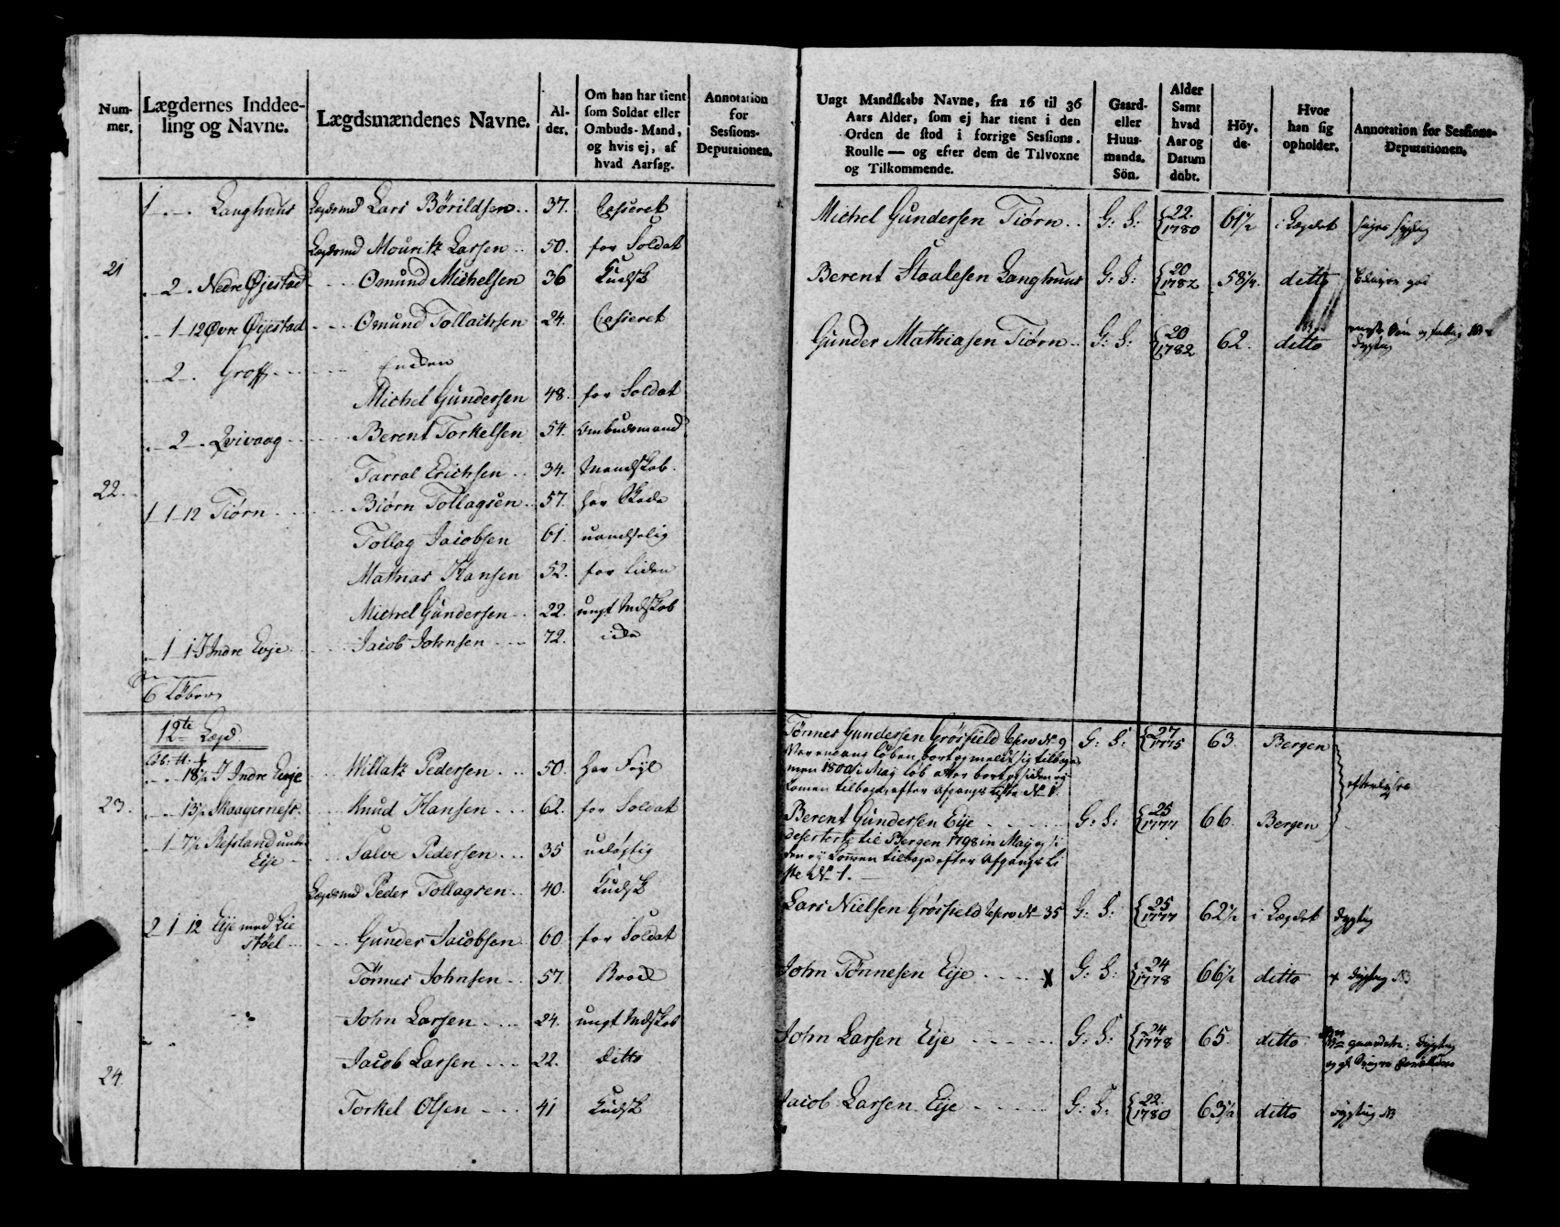 Num-
mer.
Lægdernes Inddee-
ling og Navne.
Lægdsmændenes Navne.
Al-
der.
Om han har tient
som Soldat eller
Ombuds-Mand,
og hvis ej, af
hvad Aarsag.
Annotation
for
Sessions-
Deputaionen.
1 Langhuus Lægdsmd Lars Börildsen 37. Casseret
Lægdsmd Mouritz Larsen 50. for Soldat
21 2 Nedre Øijestad Osmund Michelsen 36 Kudsk
1 12 Øvre Øijestad Osmund Tollachsen 24. Casseret
2 Groff Enden
Michel Gundersen 48. for Soldat
2 Qvivaag Berent Torkelsen 54. Ombudsmand
Tarral Erichsen 34. Mandskab
22. 1 1 12 Tiørn Biørn Tollagsen 57. har Skade
Tollag Jacobsen 61. uandselig
Mathias Hansen 52. for Liden
Michel Gundersen 22. ungt Mdskab
1 1 Indre Eyje Jacob Johnsen 72.
6 Løber
12te Lægd
18½ I Indre Eyje Willatz Pedersen 50. har Fejl
23. 13½ Skaagerness Knud Hansen 62. for Soldat
1 7½ Refsland under
Eije Salve Pedersen 35 udøgtig
Lægdsmd Peder Tollagsen 40. Kudsk
2 1 12 Eije med Lie
Støel Gunder Jacobsen 60 for Soldat
Tönnes Johnsen 57. Brok
John Larsen 24. ungt Mdskab
Jacob Larsen 22. ditto
24. Torkel Olsen 41 Kudsk
Ungt Mandskabs Navne, fra 16 til 36
Aars Alder, som ej har tient i den
Orden de stod i forrige Sessions-
Roulle — og efter dem de Tilvoxne
og Tilkommende.
Gaard-
eller
Huus-
mands.
Sön.
Alder
Samt
hvad
Aar og
Datum
døbt.
Höy-
de.
Hvor
han sig
opholder.
Annotation for Sessions-
Deputationen.
Michel Gundersen Tiørn G: S: 22. 1780 61½ i Lægdet
Berent Staalesen Langhuus G: S: 20 1782 58¼. ditto
Gunder Mathiasen Tiørn G: S: 20 1782 62. ditto
dygtig
Tönnes Gundersen Grösfield G: S: 27 1775 63. Bergen
efterlyses
Berent Gundersen Eije G: S: 25 1777 66. Bergen
deserterte til Bergen 1798 in Maj
tilbage efter Afgangs Li
ste No 1.
Lars Nielsen Grösfield No 35 G: S: 25 1777 62½ i Lægdet dygtig
John Tönnesen Eije G: S: 24 1778 66½ ditto + dygtig NB
John Larsen Eije G: S: 24 1778 65. ditto
Jacob Larsen Eije G: S: 22. 1780 63½ ditto dygtig NB